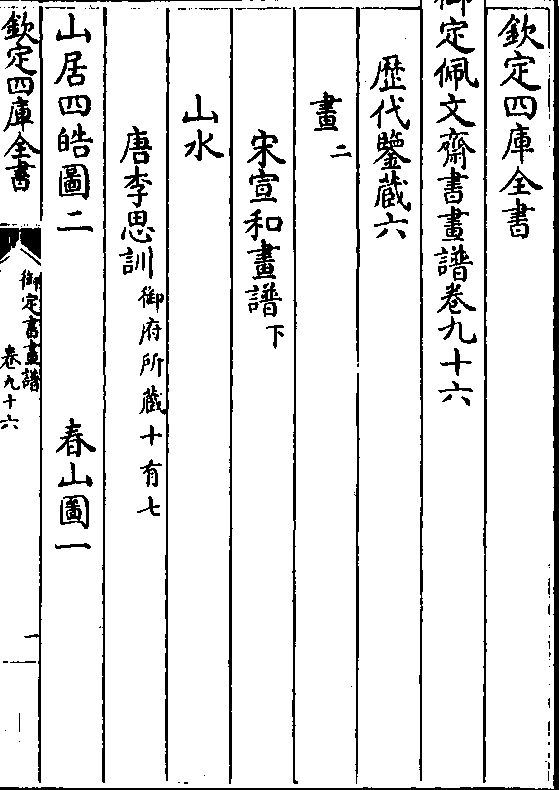 欽定四庫全書
御定佩文齋書畫譜卷九十六
歴代鑒藏六
畫二
宋宣和畫譜下
山水
唐李思訓御府所藏十有七
山居四皓圖二 春山圖一
欽定四庫全書 御定書畫譜 卷九十六 一